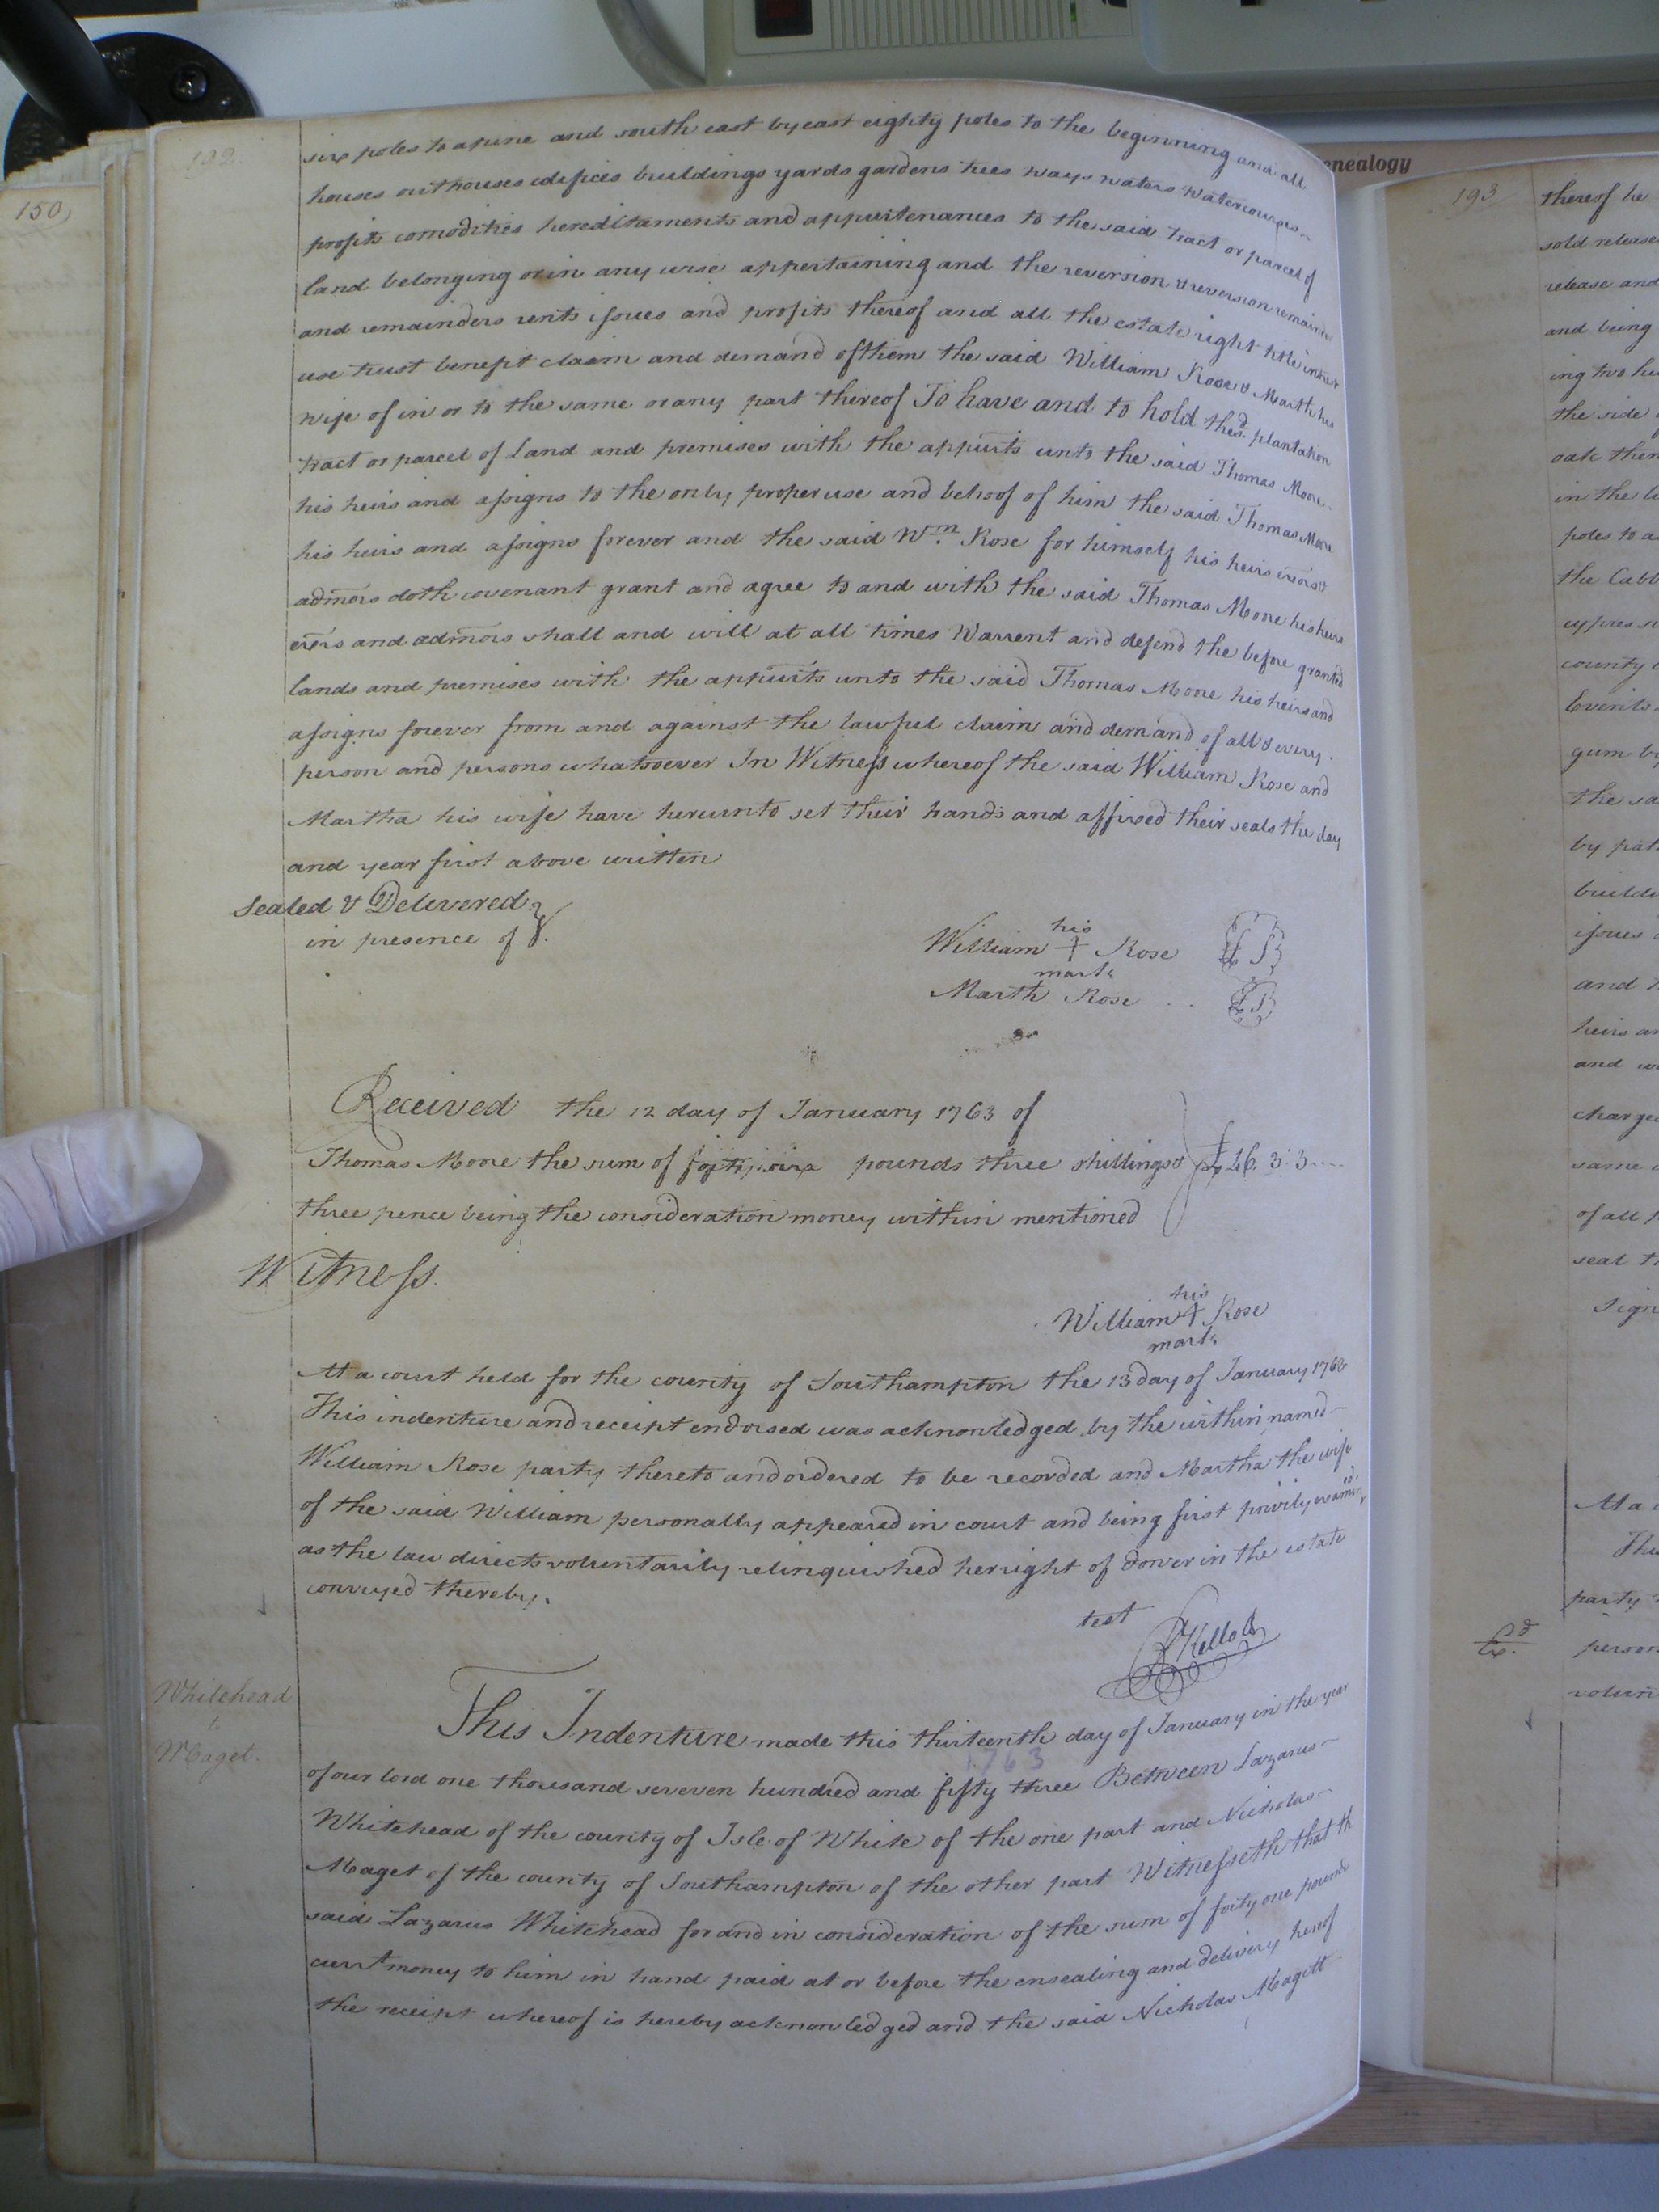 150
192
six poles to a pine and south east by east eighty poles to the beginning and all
houses outhouses edifices buildings yards gardens trees ways waters watercourses
profits comodities hereditaments and appurtenances to the said tract or parcel of
land belonging or in any wise appertaining and the reversion & reversion remainder
and remainders rents issues and profits thereof and all the estate right title interest
use trust benefit claim and demand of them the said William Rose & Marth his
wife of in or to the same or any part thereof To have and to hold the sd. plantation
tract or parcel of Land and premises with the appurts unto the said Thomas Moore
his heirs and assigns to the only proper use and behoof of him the said Thomas Moore
his heirs and assigns forever and the said Wm. Rose for himself his heirs exors &
admors doth covenant grant and agree to and with the said Thomas Moore his heirs
exors and admors shall and will at all times Warrent and defend the before granted
lands and premises with the appurts unto the said Thomas Moore his heirs and
assigns forever from and against the lawful claim and demand of all & every
person and persons whatsoever In Witness whereof the said William Rose and
Martha his wife have hereunto set their hands and affixed their seals the day
and year first above written
Sealed & Delivered
in presence of
his
William + Rose LS
mark
Marth Rose .. LS
Received the 12 day of January 1763 of
Thomas Moore the sum of forty six pounds three shillings & £46. 3. 3
three pence being the consideration money within mentioned
Witness.
his
William + Rose
mark
At a court held for the county of Southampton the 13 day of January 1763
This indenture and receipt endorsed was acknowledged by the within named
William Rose party thereto and ordered to be recorded and Martha the wife
of the said William personally appeared in court and being first privily examined
as the law directs voluntarily relinquished her right of dower in the estate
conveyed thereby.
test
R Kello
Whitehead
to
Maget.
This Indenture made this thirteenth day of January in the year
1763
of our lord one thousand serveen hundred and fifty three Between Lazarus
Whitehead of the county of Isle of White of the one part and Nicholas
Maget of the county of Southampton of the other part Witnesseth that th
said Lazarus Whitehead for and in consideration of the sum of forty one pound
currt money to him in hand paid at or before the ensealing and delivery hereof
the receipt whereof is hereby acknowledged and the said Nicholas Magett
enealogy
193
thereof he
sold release
release and
and being
ing two hu
the side
oak then
in the
poles to a
the Cabb
cypress
county
Everits
gum by
the sa
by pat
buildi
issues
and
heirs an
and w
charged
same
of all
seal
Sign
At a
This
party
person
volun